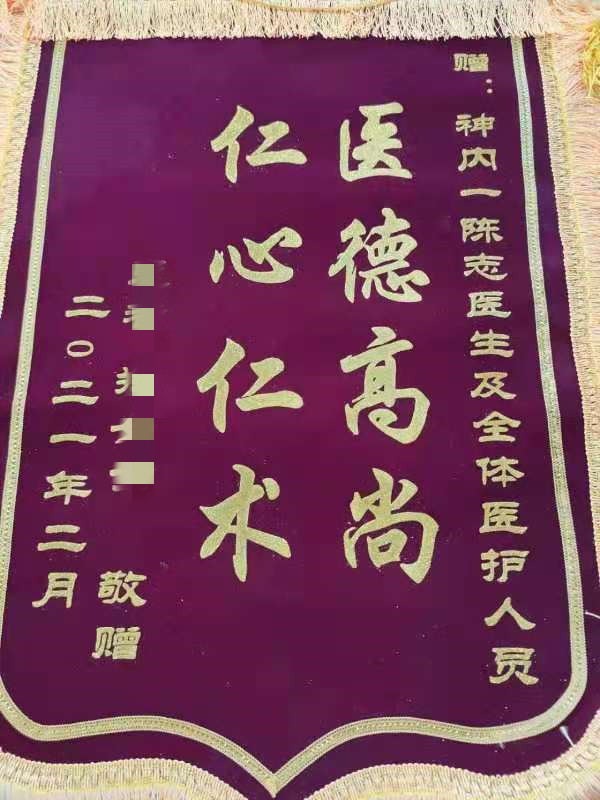 赠：神内一陈志医生及全体医护人员
医德高尚
仁心仁术
敬赠
二〇二一年二月